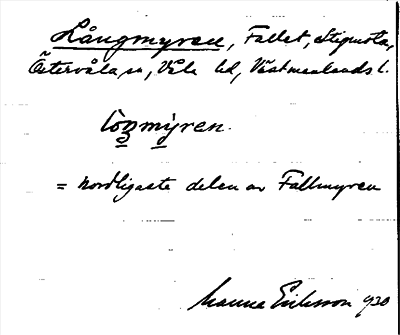 Långmyren, Fallet, Stignsta,
Östervåla sn, Våla hd, Västmanlands l.
lòŋmy̍ren.
= nordligaste delen av Fallmyren
Manne Eriksson 930